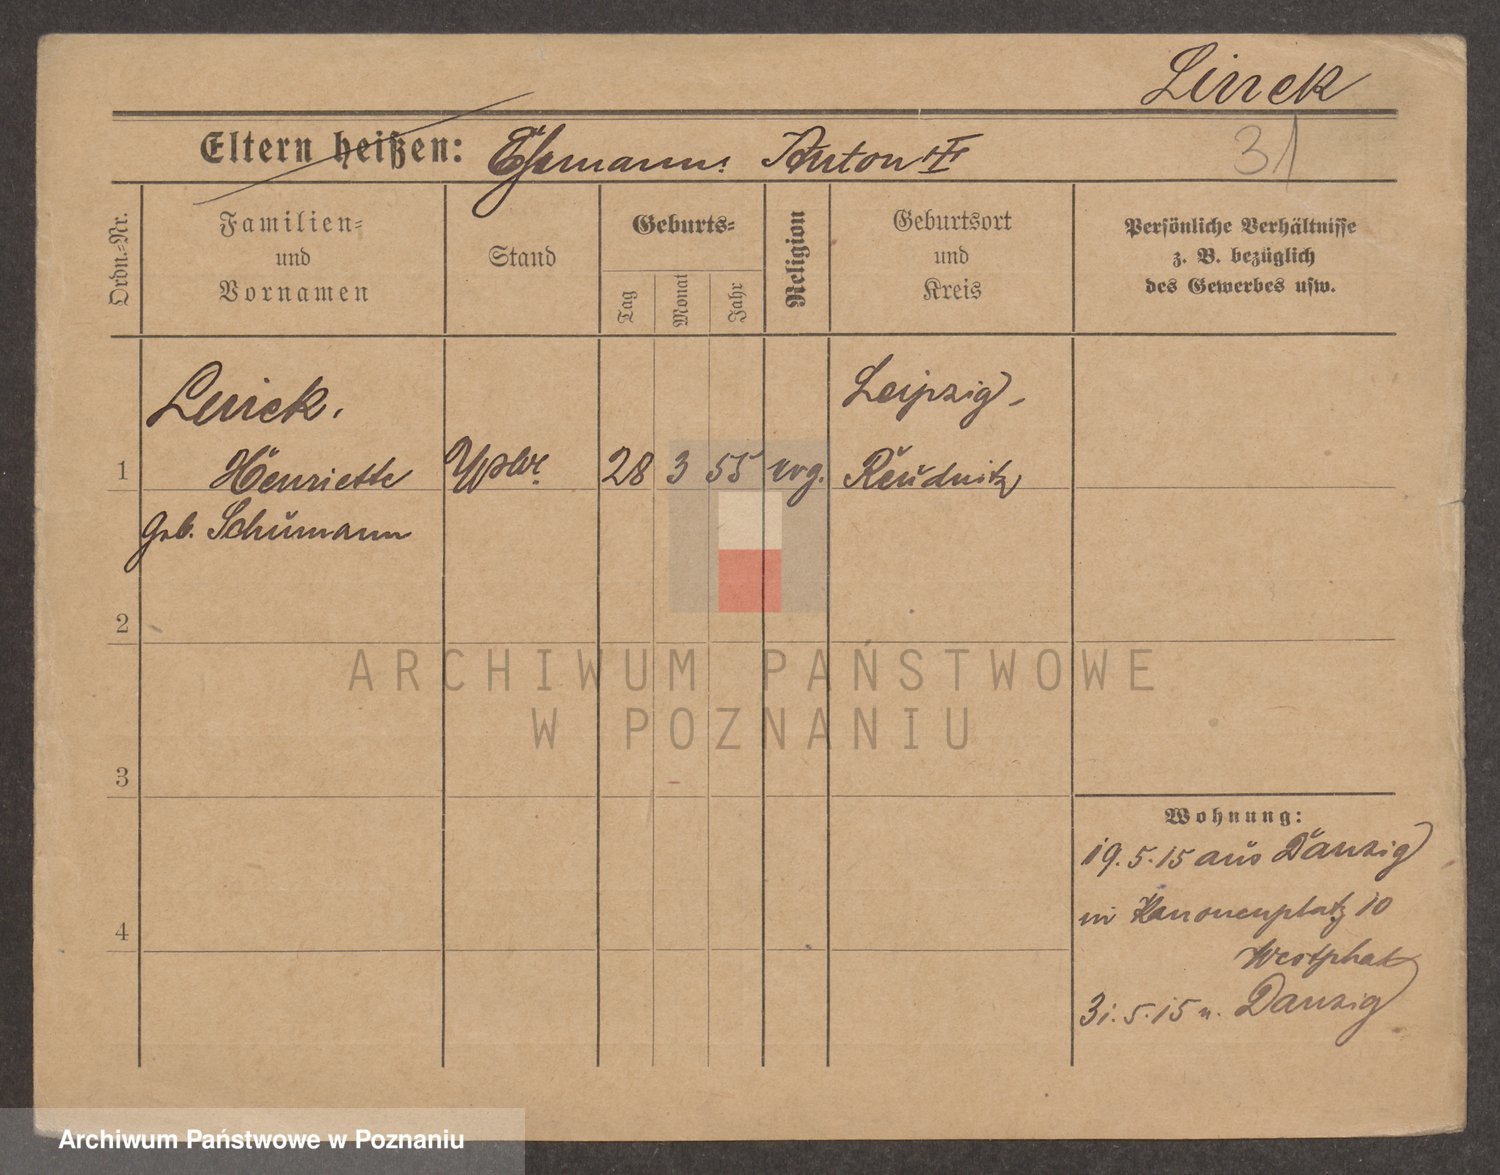 Linek
Eltern heißen: Ehemann: Anton †
31
Ordn.-Nr.
Familien-
und
Vornamen
Stand
Geburts-
Tag
Monat
Jahr
Religion
Geburtsort
und
Kreis
Persönliche Verhältnisse
z. B. bezüglich
des Gewerbes usw.
Linek.
Leipzig-
1 Henriette Wwe. 28 3 55 evg. Reudnitz
geb. Schumann
2
ARCHIWUM PAŃSTWOWE
W POZNANIU
3
Wohnung:
19.5.15 aus Danzig
4
in Kanonenplatz 10
Westphal
31.5.15 n. Danzig
Archiwum Państwowe w Poznaniu